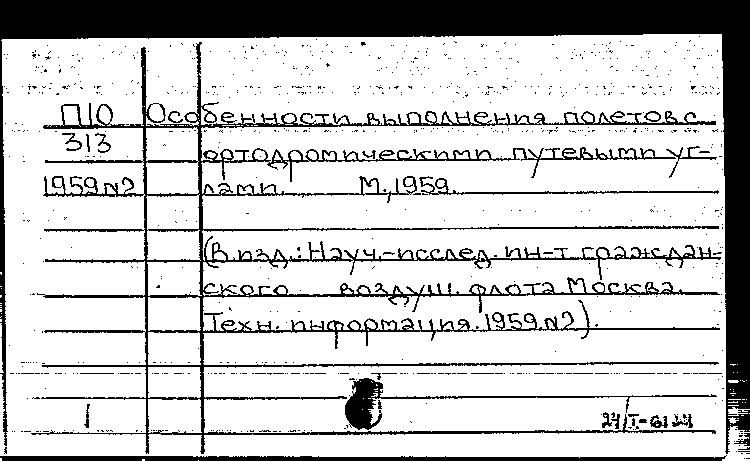 П10 Особенности выполнения полетов с
313 ортодромическими путевыми уг-
1959 №2 лами. М., 1959.
(В изд.: Науч.-исслед. ин-т граждан-
ского воздуш. флота. Москва.
Техн. информация. 1959 №2).
1